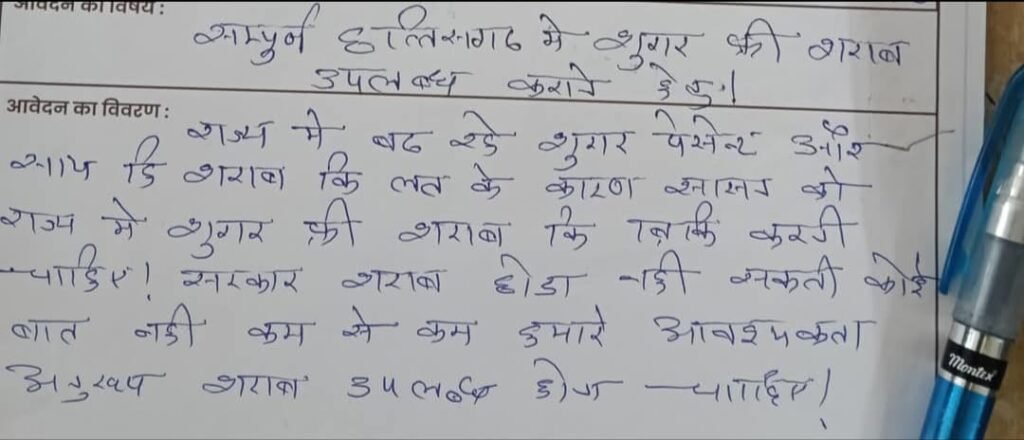 आवेदन का विषय :
सम्पुर्न छत्तिसगढ मे शुगर फ्री शराब
उपलबध कराने हेतु।
आवेदन का विवरण :
राज्य मे बढ रहे शुगर पेसेन्ट और
साथ हि शराब कि लत के कारण सासन को
राज्य मे शुगर फ्री शराब कि बिक्रि करनी
चाहिए! सरकार शराब छोडा नही सकती कोई
बात नही कम से कम हमारे आवश्यकता
अनुरूप शराब उपलब्ध होना चाहिए!
Montex